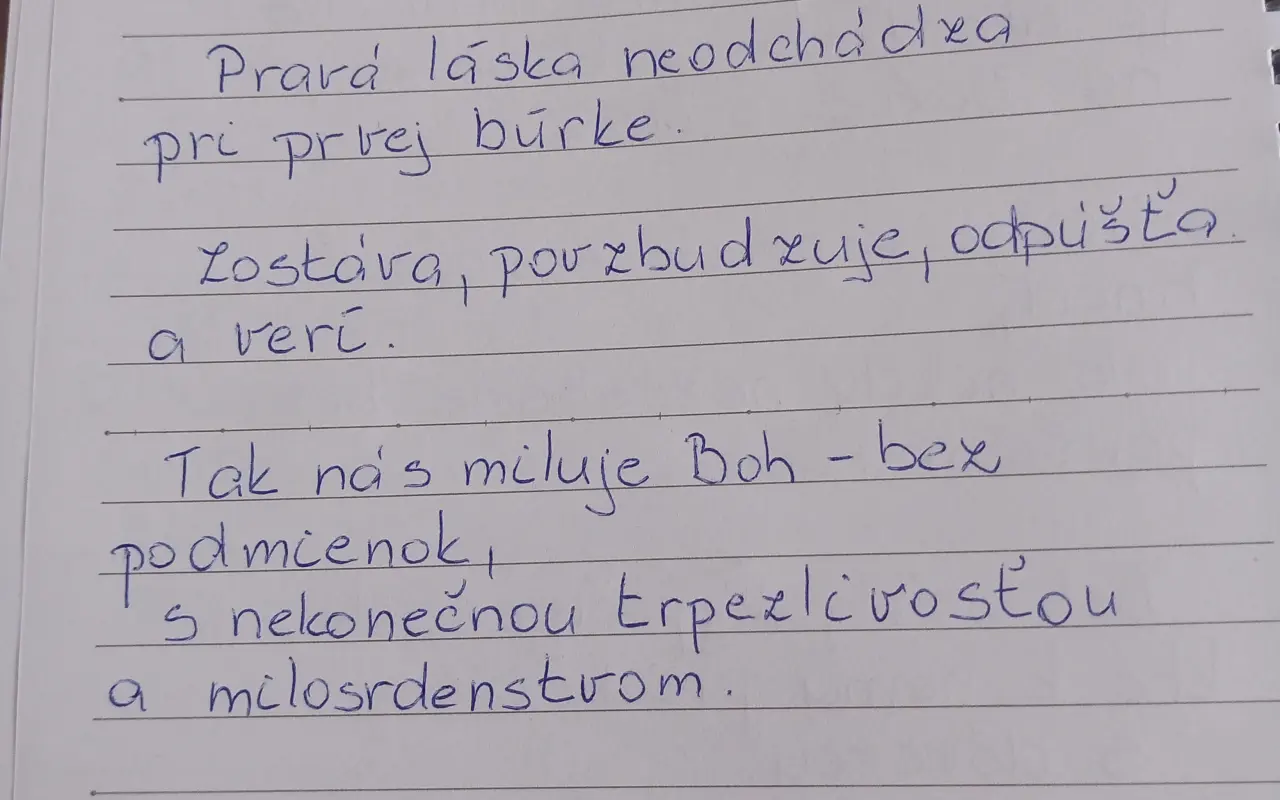 Pravá láska neodchádza
pri prvej búrke.
Zostáva, povzbudzuje, odpúšťa
a verí.
Tak nás miluje Boh - bez
podmienok,
s nekonečnou trpezlivosťou
a milosrdenstvom.